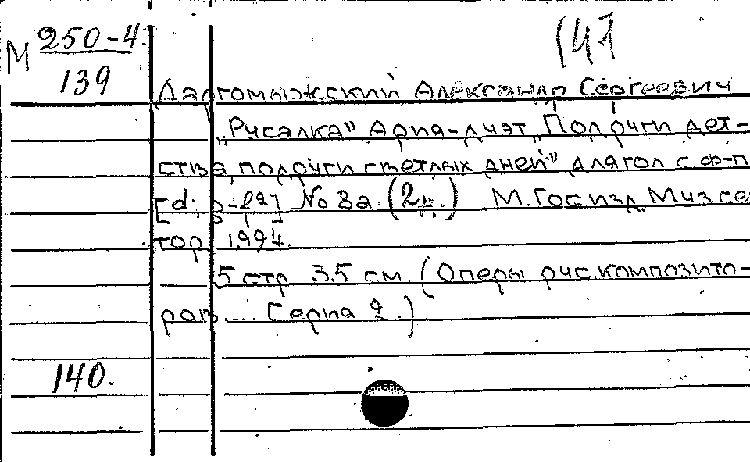 М 250-4.
139
147
Даргомыжский Александр Сергеевич
„Русалка" Ария-дуэт „Подруги дет-
ства, подруги светлых дней" для гол с ф-п
[d. - ] No 3а. (2к.) М. Госизд. Муз сек
тор 1924.
5 стр 35 см (Оперы рус. композито-
ров ... Серия 2.)
140.